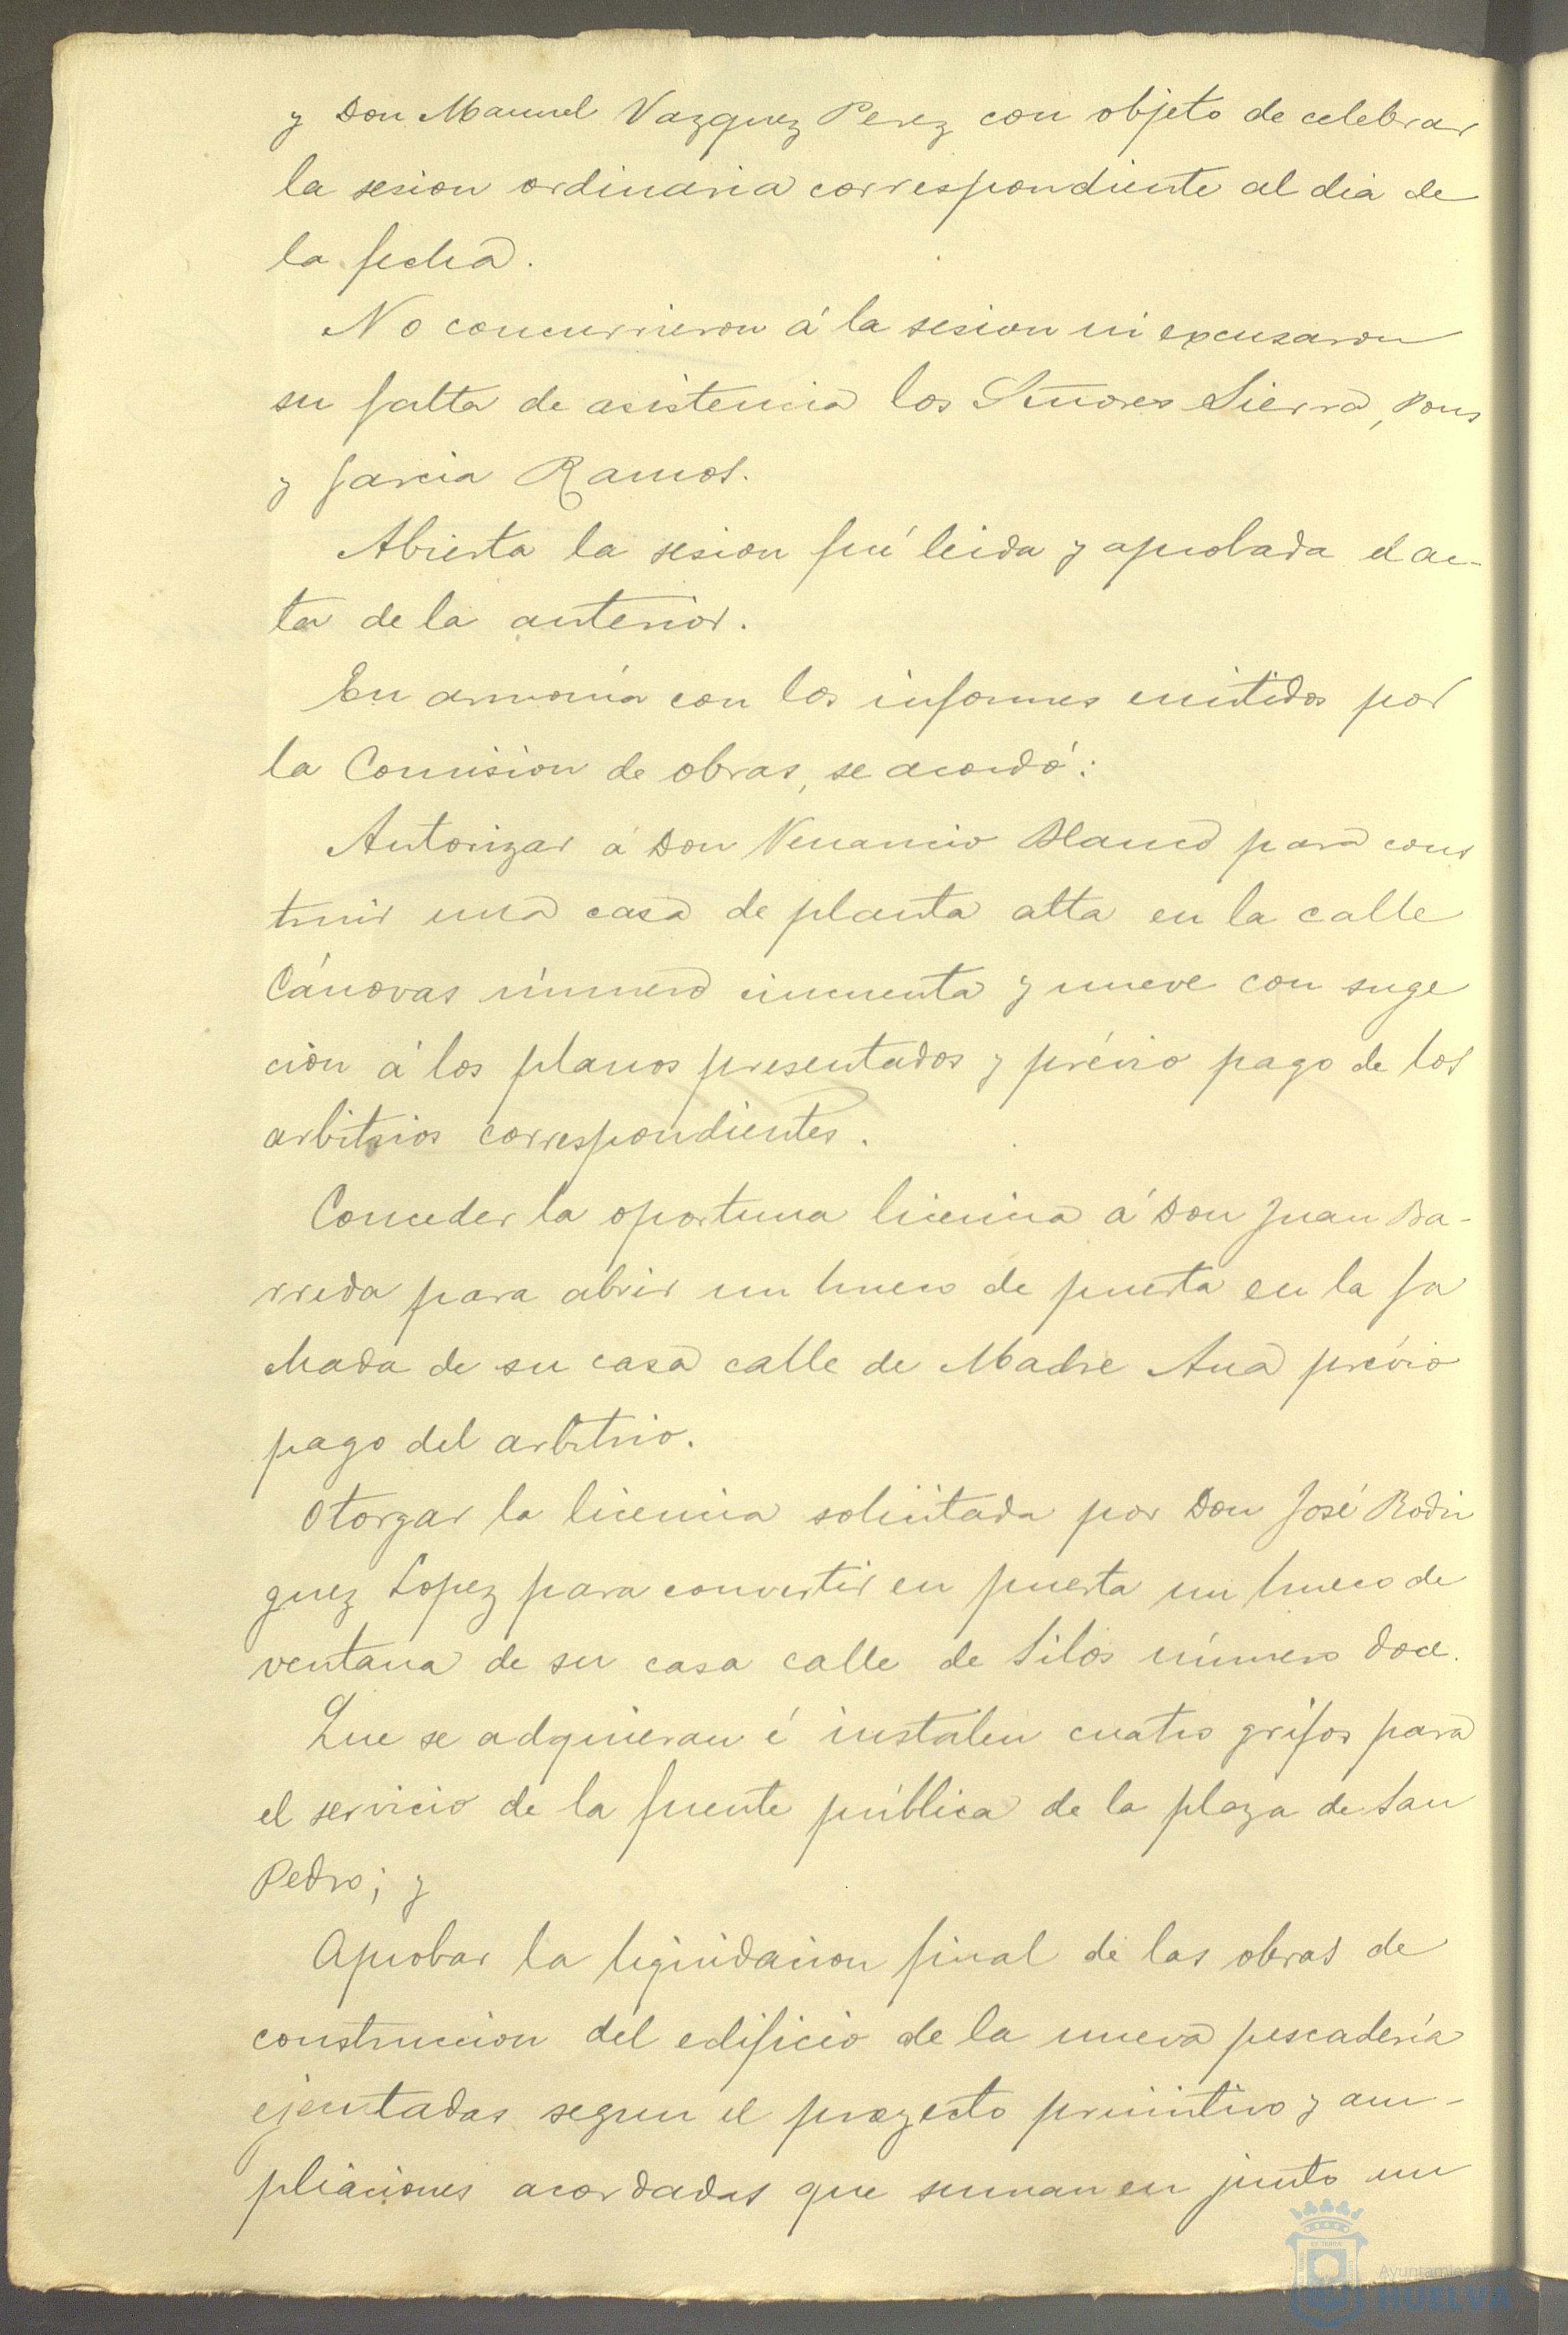 y Don Manuel Vazquez Perez con objeto de celebrar
la sesion ordinaria correspondiente al dia de
la fecha.
No concurrieron á la sesion ni excusaron
su falta de asistencia los Señores Sierra, Pons
y Garcia Ramos.
Abierta la sesion fué leida y aprobada el ac-
ta de la anterior.
En armonía con los informes emitidos por
la Comision de obras, se acordó:
Autorizar á Don Venancio Blanco para cons
truir una casa de planta alta en la calle
Cánovas número cincuenta y nueve con suge
cion á los planos presentados y prévio pago de los
arbitrios correspondientes.
Conceder la oportuna licencia á Don Juan Ba-
rreda para abrir un hueco de puerta en la fa
chada de su casa calle de Madre Ana prévio
pago del arbitrio.
Otorgar la licencia solicitada por Don José Rodri
guez Lopez para convertir en puerta un hueco de
ventana de su casa calle de Silos número doce.
Que se adquieran é instalen cuatro grifos para
el servicio de la fuente pública de la plaza de San
Pedro; y
Aprobar la liquidacion final de las obras de
construccion del edificio de la nueva pescadería
ejecutadas segun el proyecto primitivo y am-
pliaciones acordadas que suman en junto un
Ayuntamiento
HUELVA